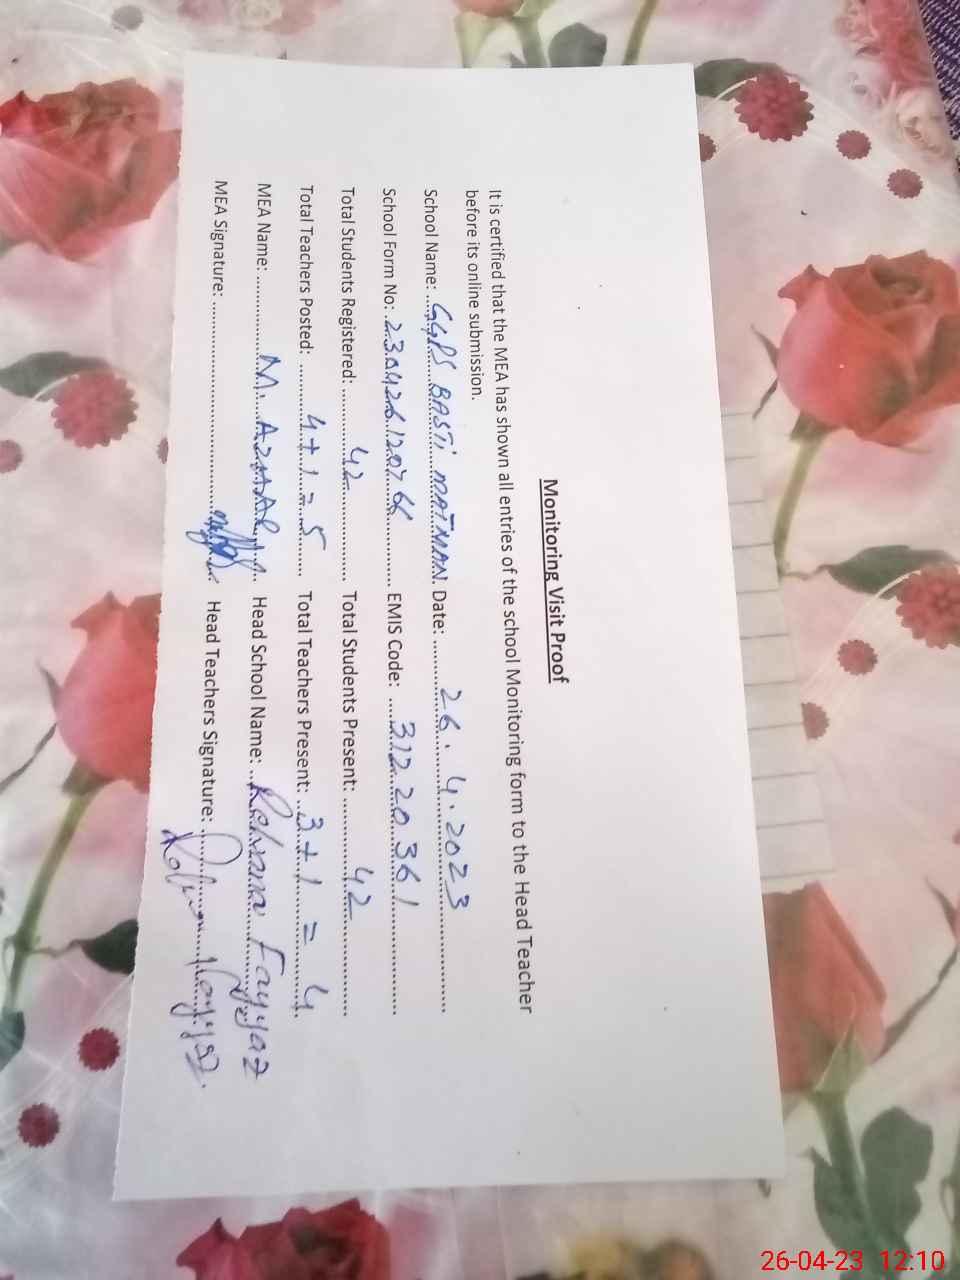 Monitoring Visit Proof
It is certified that the MEA has shown all entries of the school Monitoring form to the Head Teacher
before its online submission.
School Name: GGPS BASTi MATMAN. Date: 26.4.2023
School Form No: EMIS Code: 31220361
Total Students Registered: 42 Total Students Present: 42
Total Teachers Posted: 4+1=5 Total Teachers Present: 3+1=4
MEA Name: M. AZHAR Head School Name: Rehana Fayyaz
MEA Signature: Head Teachers Signature:
26-04-23 12:10